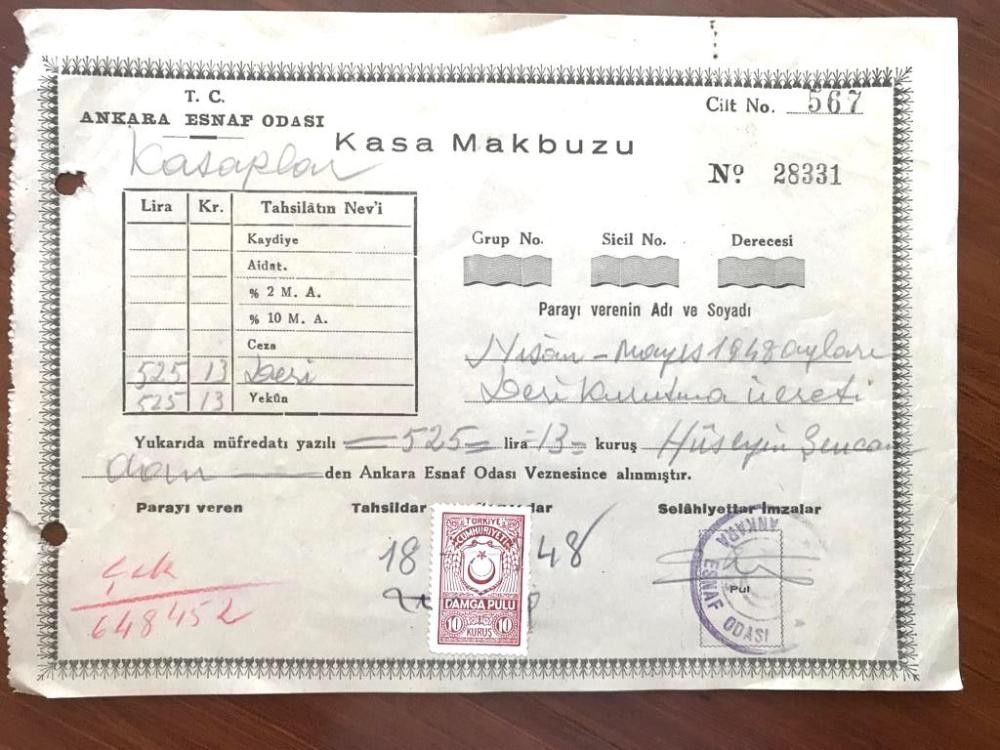 T. C.
ANKARA ESNAF ODASI
Cilt No. 567
Kasa Makbuzu
Kasaplar
Nº 28331
Lira Kr. Tahsilâtın Nev'i
Kaydiye
Aidat.
% 2 M. A.
% 10 M. A.
Ceza
525 13 Deri
525 13 Yekûn
Grup No. Sicil No. Derecesi
Parayı verenin Adı ve Soyadı
Nisan - Mayıs 1948 ayları
Deri kurutma ücreti
Yukarıda müfredatı yazılı =525= lira -13- kuruş Hüseyin Şencan
dan den Ankara Esnaf Odası Veznesince alınmıştır.
Parayı veren Tahsildar Selâhiyettar İmzalar
18 48
Çek
648452
TÜRKİYE
CUMHURİYETİ
DAMGA PULU
10 KURUŞ 10
Pul
ANKARA ESNAF ODASI